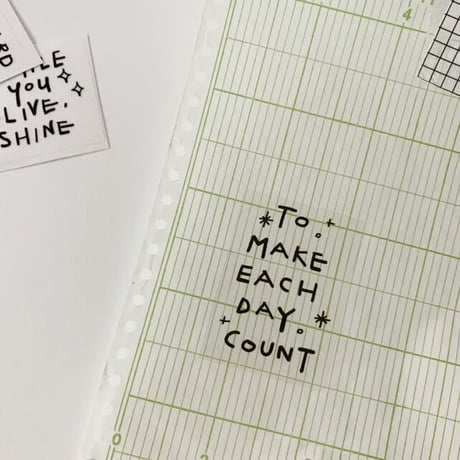 YOU
LIVE,
SHINE
*TO.
MAKE
EACH
DAY.*
COUNT
4
0